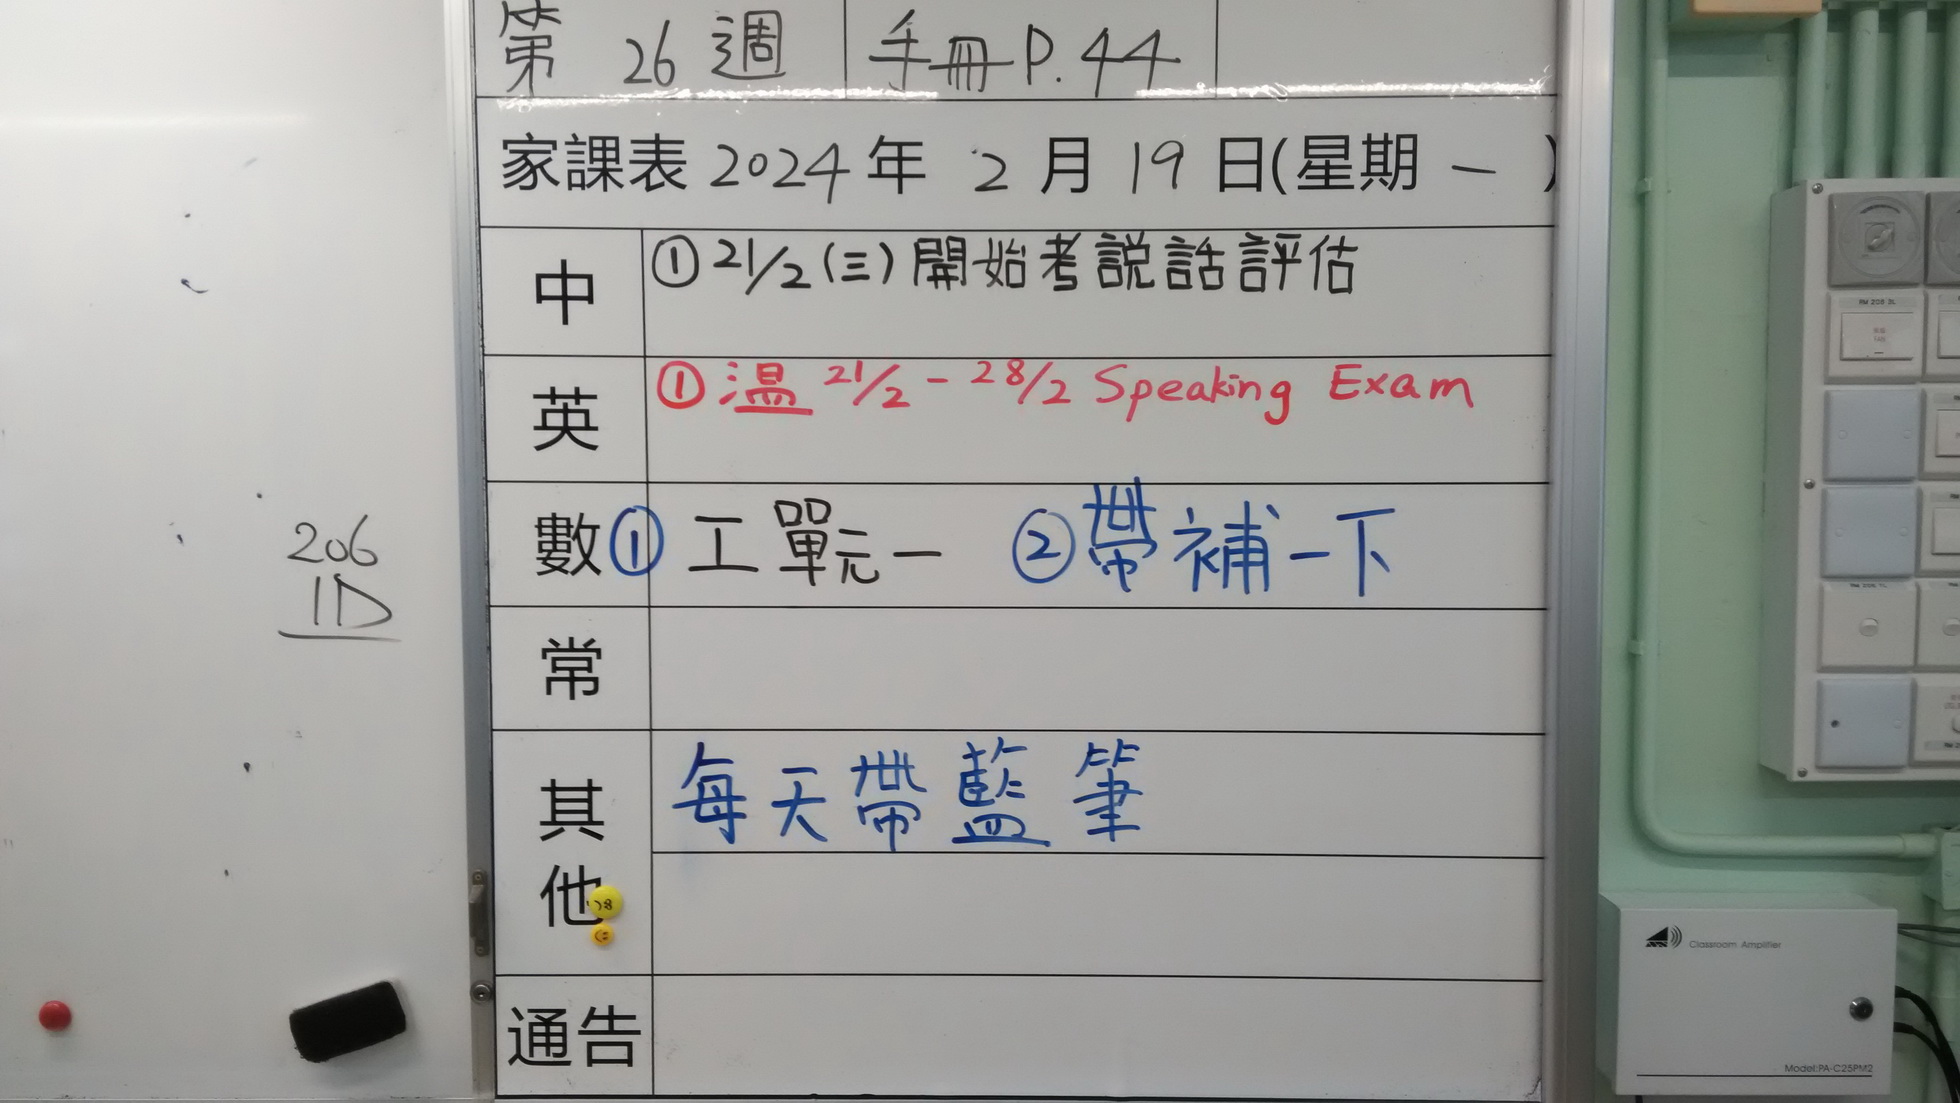 第 26 週 手冊 P.44
家課表 2024 年 2 月 19 日(星期 一 )
中 ① 21/2 (三) 開始考說話評估
英 ① 溫 21/2 - 28/2 Speaking Exam
數 ① 工單元一 ② 帶補一下
常
其他 每天帶藍筆
通告
206
1D
Classroom Amplifier
Model:PA-C25PM2